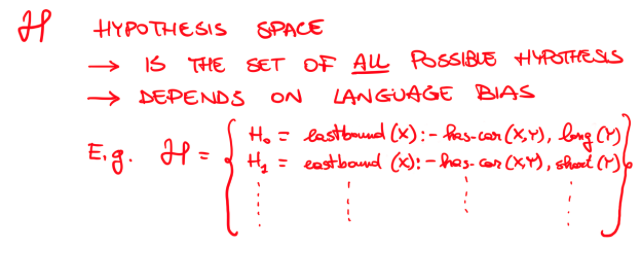 ℋ HYPOTHESIS SPACE
→ IS THE SET OF ALL POSSIBLE HYPOTHESIS
→ DEPENDS ON LANGUAGE BIAS
E.g. ℋ = {
H₀ = eastbound (X):- has-car (X,Y), long (Y)
H₁ = eastbound (X):- has-car (X,Y), short (Y)
}